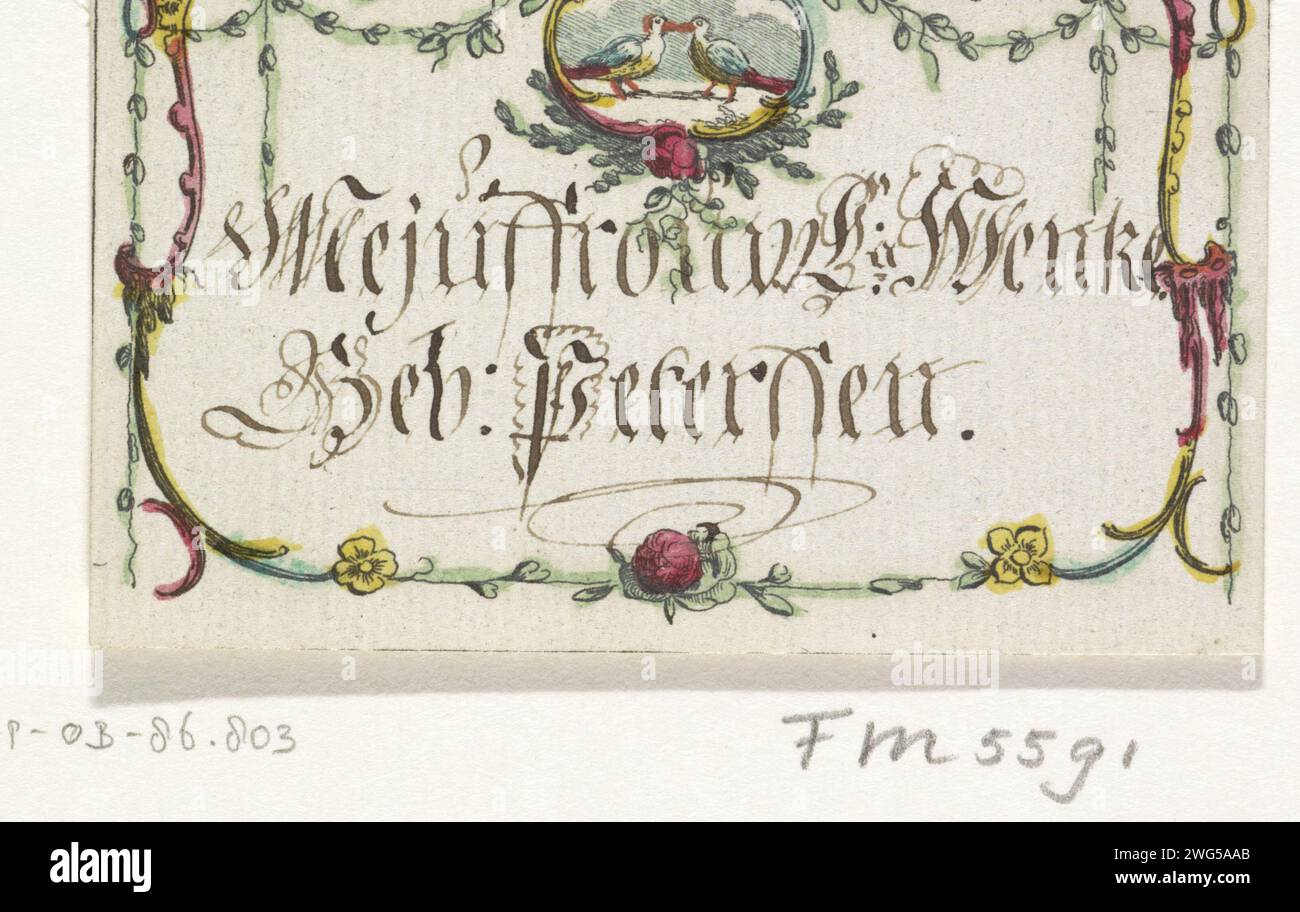 Mejuffrouw C:a Wenke.
Geb: Petersen.
P-OB-86.803
FM 5591
alamy
Image ID: 2WG5AAB
www.alamy.com